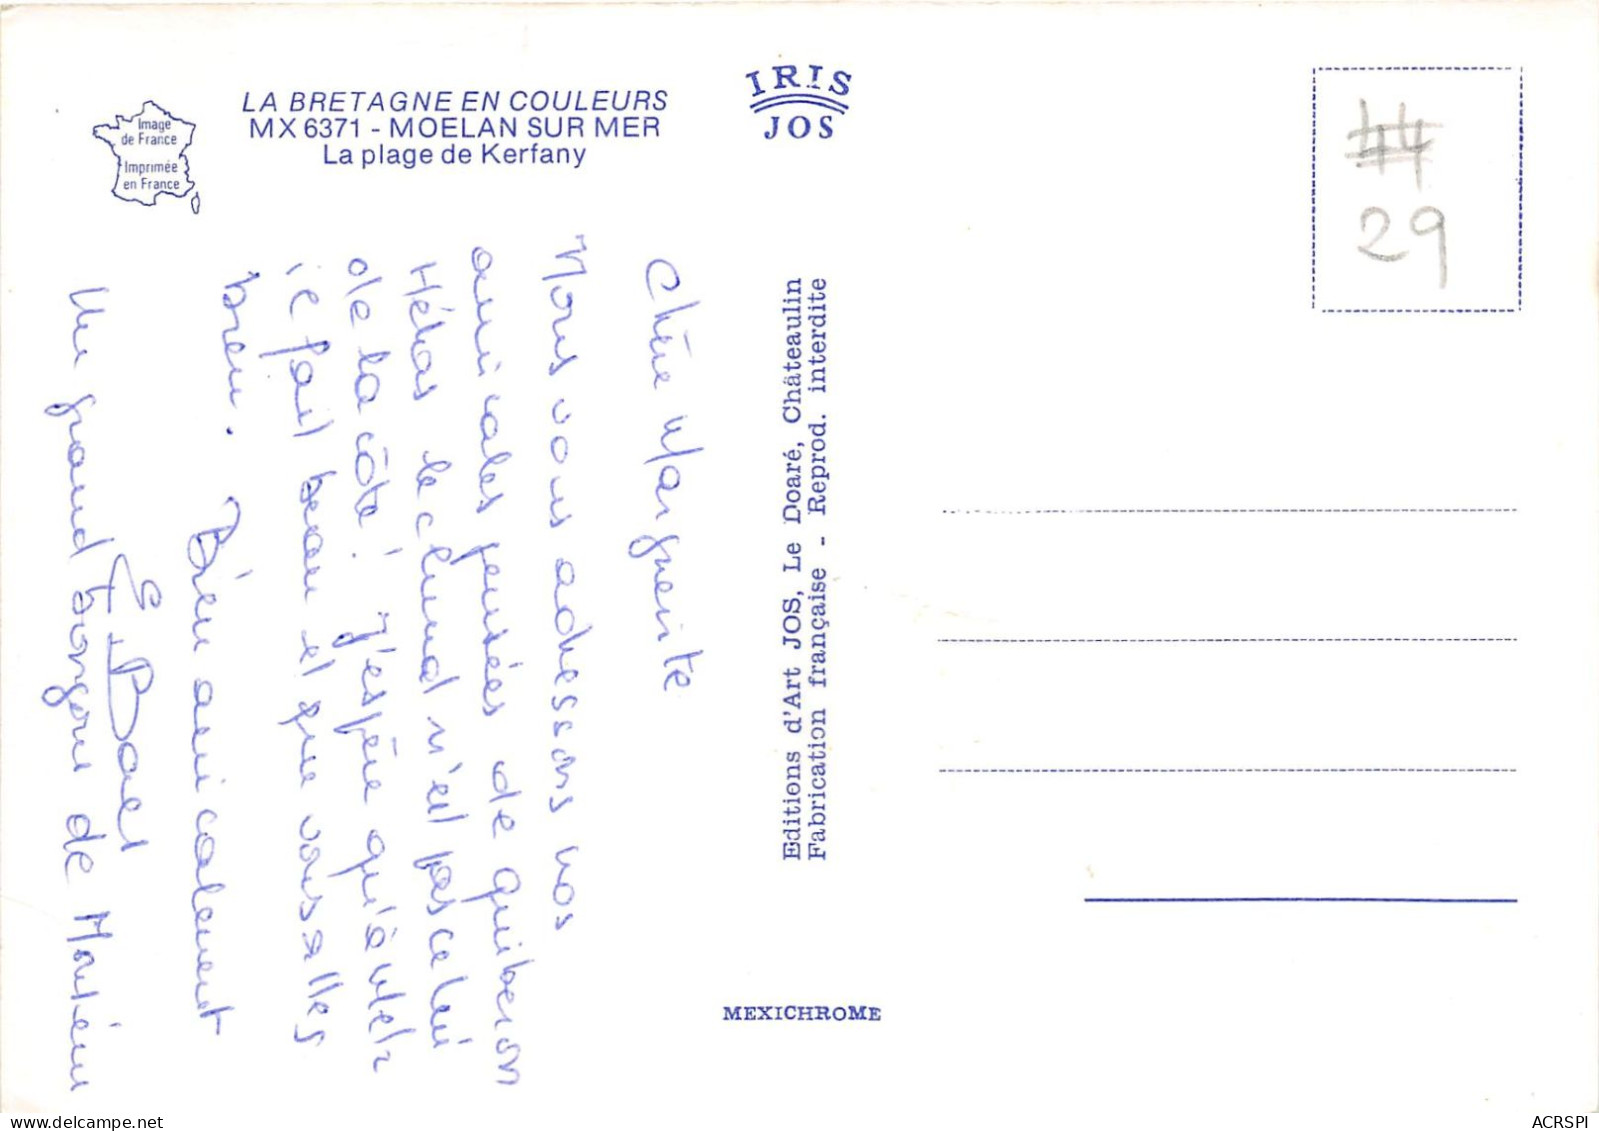 LA BRETAGNE EN COULEURS
MX 6371 - MOELAN SUR MER
La plage de Kerfany
Image
de France
Imprimée
en France
IRIS
JOS
29
Chère Marguerite
Nous vous adressons nos
amicales pensées de quiberon
Hélas le climat n'est pas celui
de la côte ! J'espère qu'à
ie fait beau et que vous allez
bien. Bien amicalement
E. Baer
Un grand bonjour de
Editions d'Art JOS, Le Doaré, Châteaulin
Fabrication française - Reprod. interdite
MEXICHROME
ACRSPI